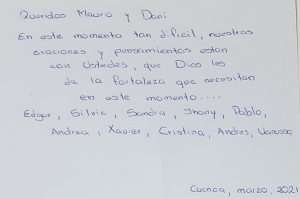 Queridos Mauro y Dani
En este momento tan dificil, nuestras
oraciones y pensamientos estan
con Ustedes, que Dios les
de la fortaleza que necesitan
en este momento....
Edgar, Silvia, Sandra, Jhony, Pablo,
Andrea, Xavier, Cristina, Andres, Vanessa,
Cuenca, marzo, 2021